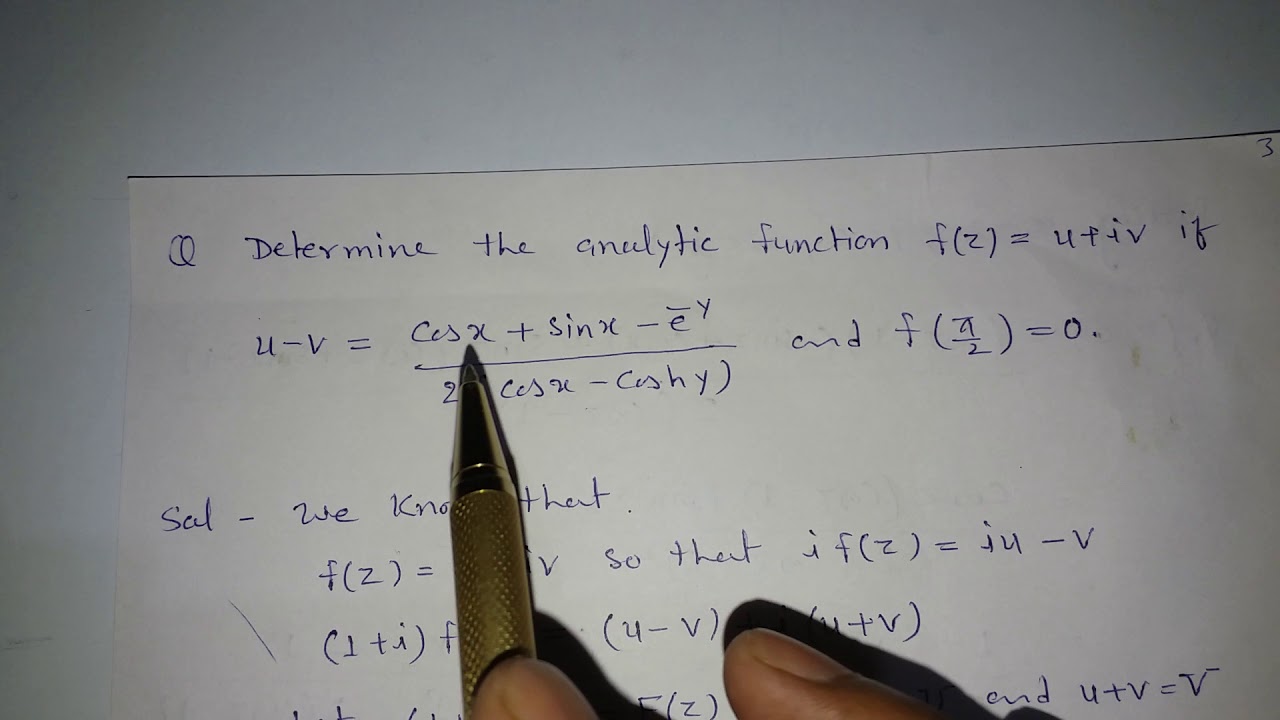 3
Q Determine the analytic function f(z) = u+iv if
u-v = cosx + sinx - e^-y / 2 cosx - coshy) and f(π/2) = 0.
Sol - We that.
f(z) = iv so that i f(z) = iu - v
(1+i) f (u-v) + (u+v)
(z) and u+v = V